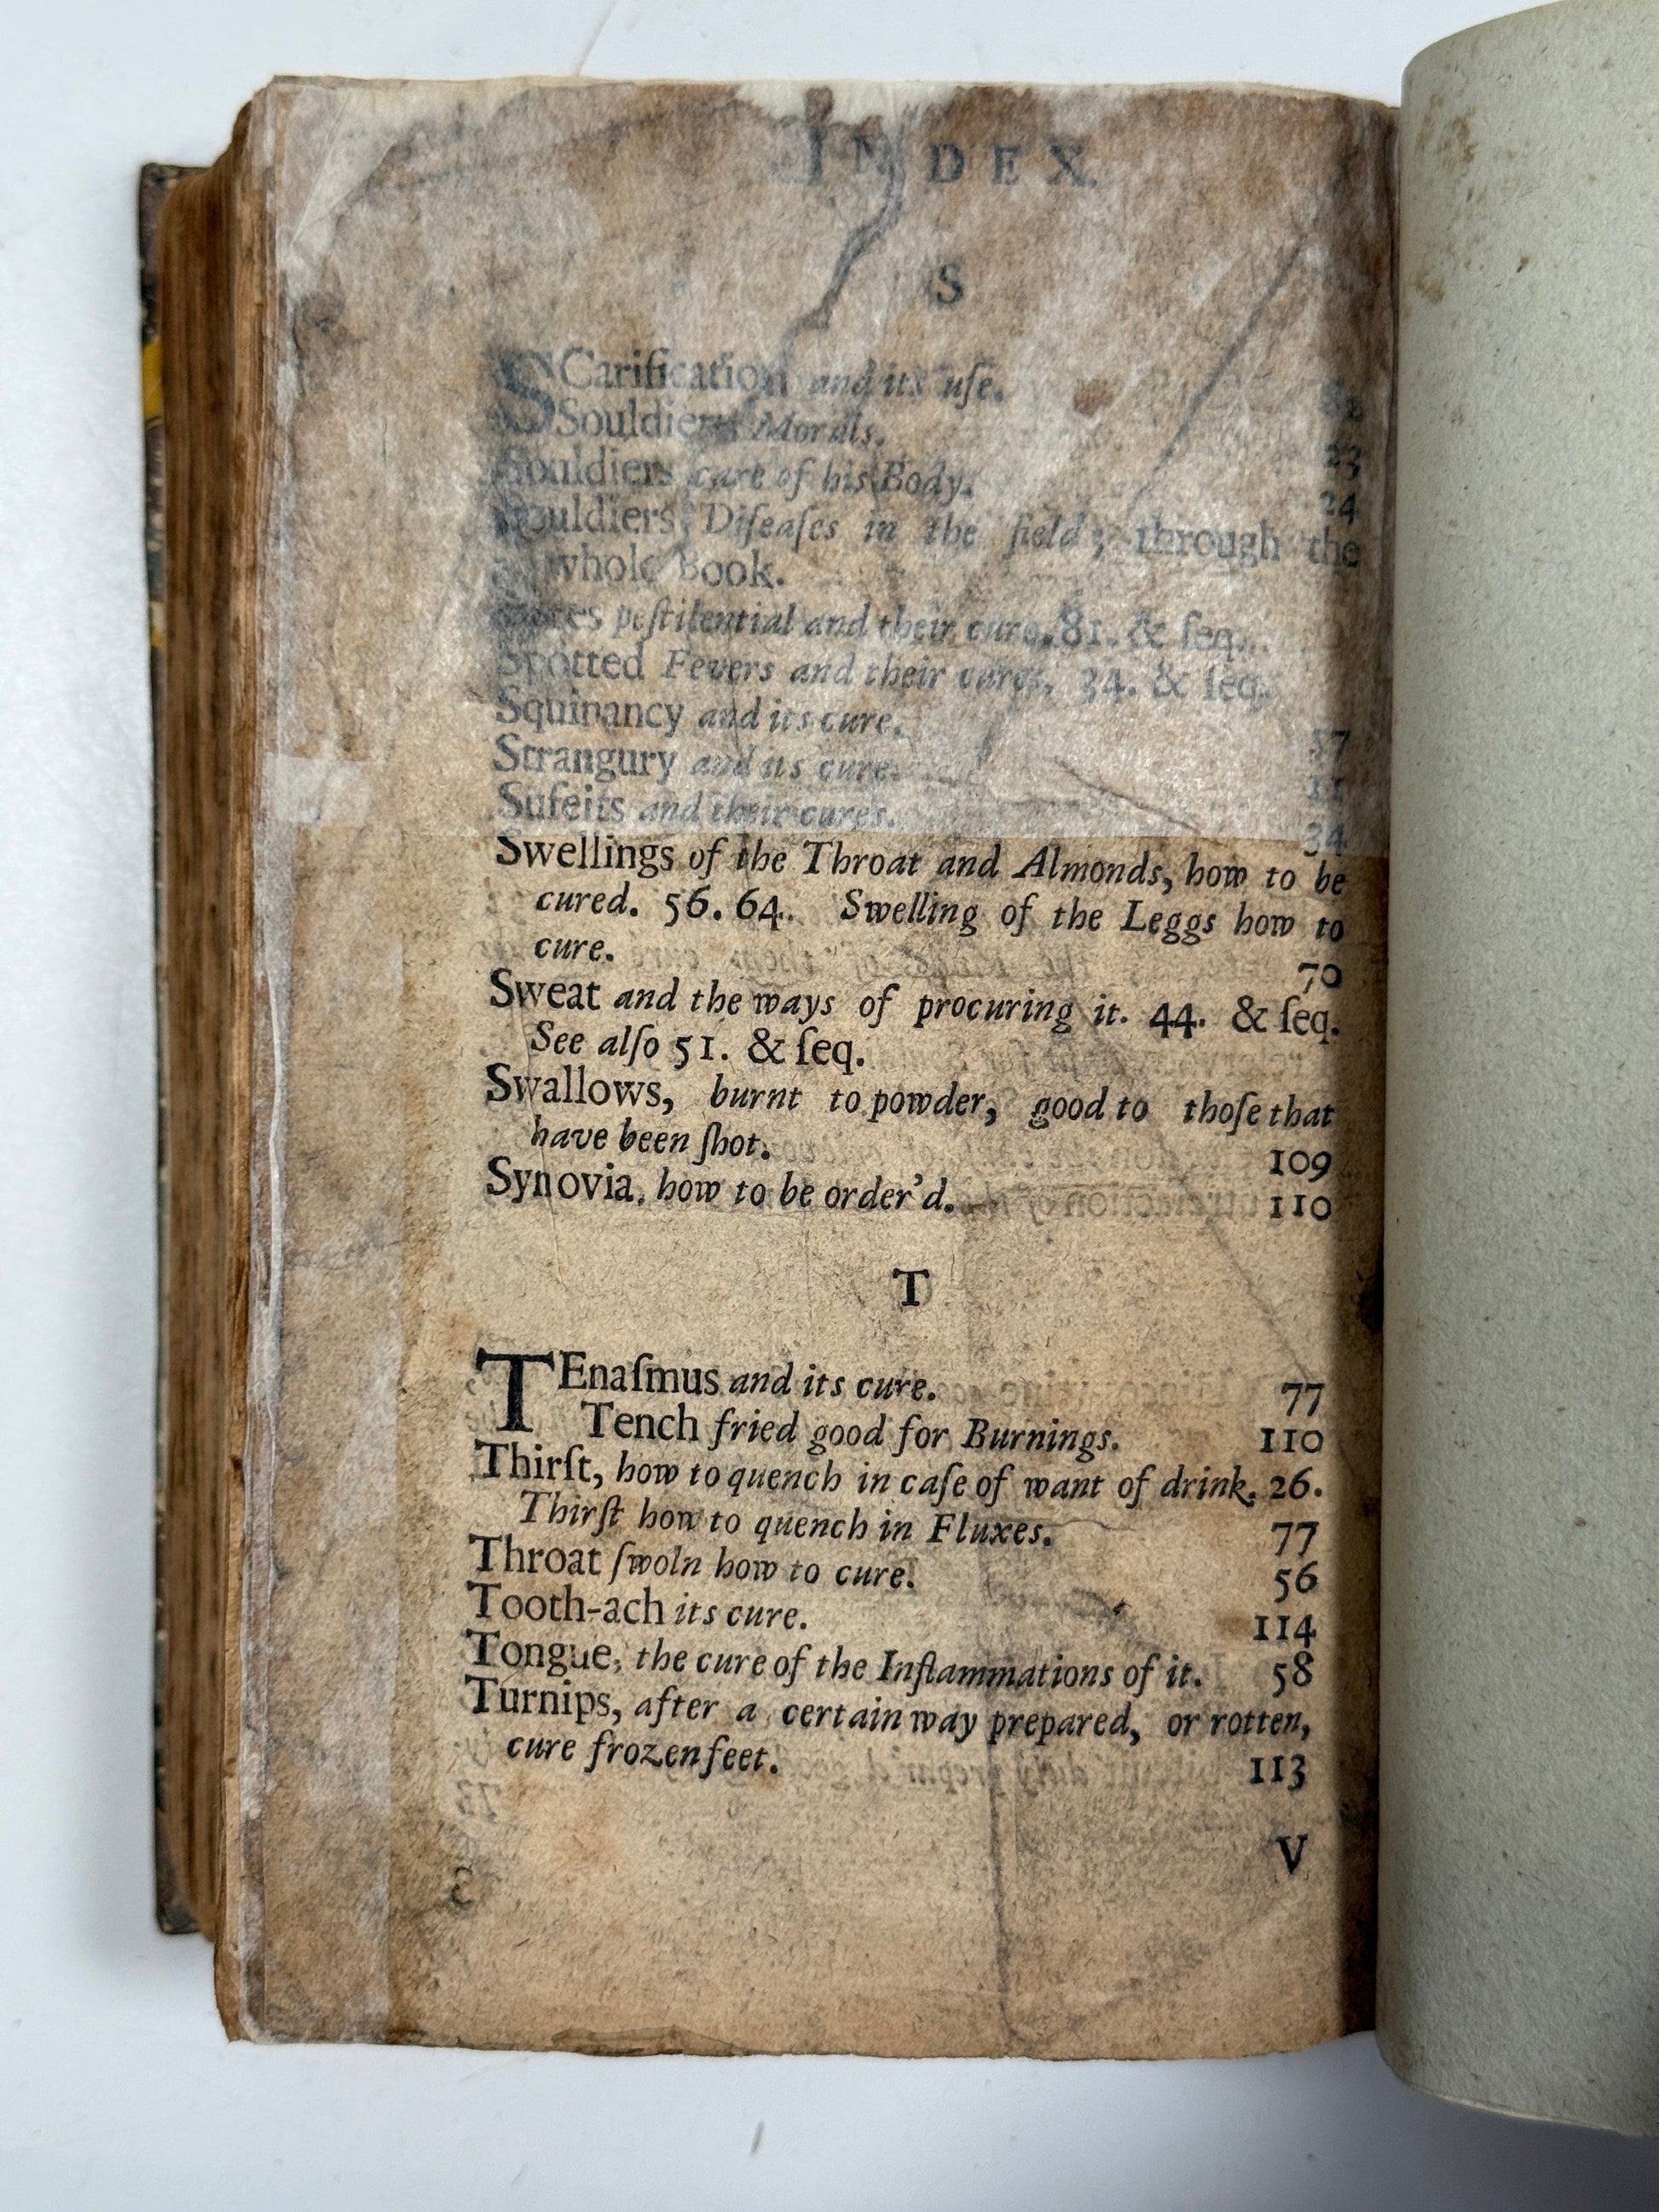 INDEX.
S
SCarification and its uſe. 82
Souldiers Morals. 23
Souldiers care of his Body. 24
Souldiers Diſeaſes in the field; through the
whole Book.
peſtilential and their cure. 81. & ſeq.
Spotted Fevers and their cures, 34. & ſeq.
Squinancy and its cure. 57
Strangury and its cure. 11
Sufeits and their cures. 34
Swellings of the Throat and Almonds, how to be
cured. 56. 64. Swelling of the Leggs how to
cure. 70
Sweat and the ways of procuring it. 44. & ſeq.
See alſo 51. & ſeq.
Swallows, burnt to powder, good to thoſe that
have been ſhot. 109
Synovia, how to be order'd. 110
T
TEnaſmus and its cure. 77
Tench fried good for Burnings. 110
Thirſt, how to quench in caſe of want of drink. 26.
Thirſt how to quench in Fluxes. 77
Throat ſwoln how to cure. 56
Tooth-ach its cure. 114
Tongue, the cure of the Inflammations of it. 58
Turnips, after a certain way prepared, or rotten,
cure frozen feet. 113
V